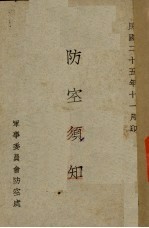 民國二十五年十一月印
防空須知
軍事委員會防空處